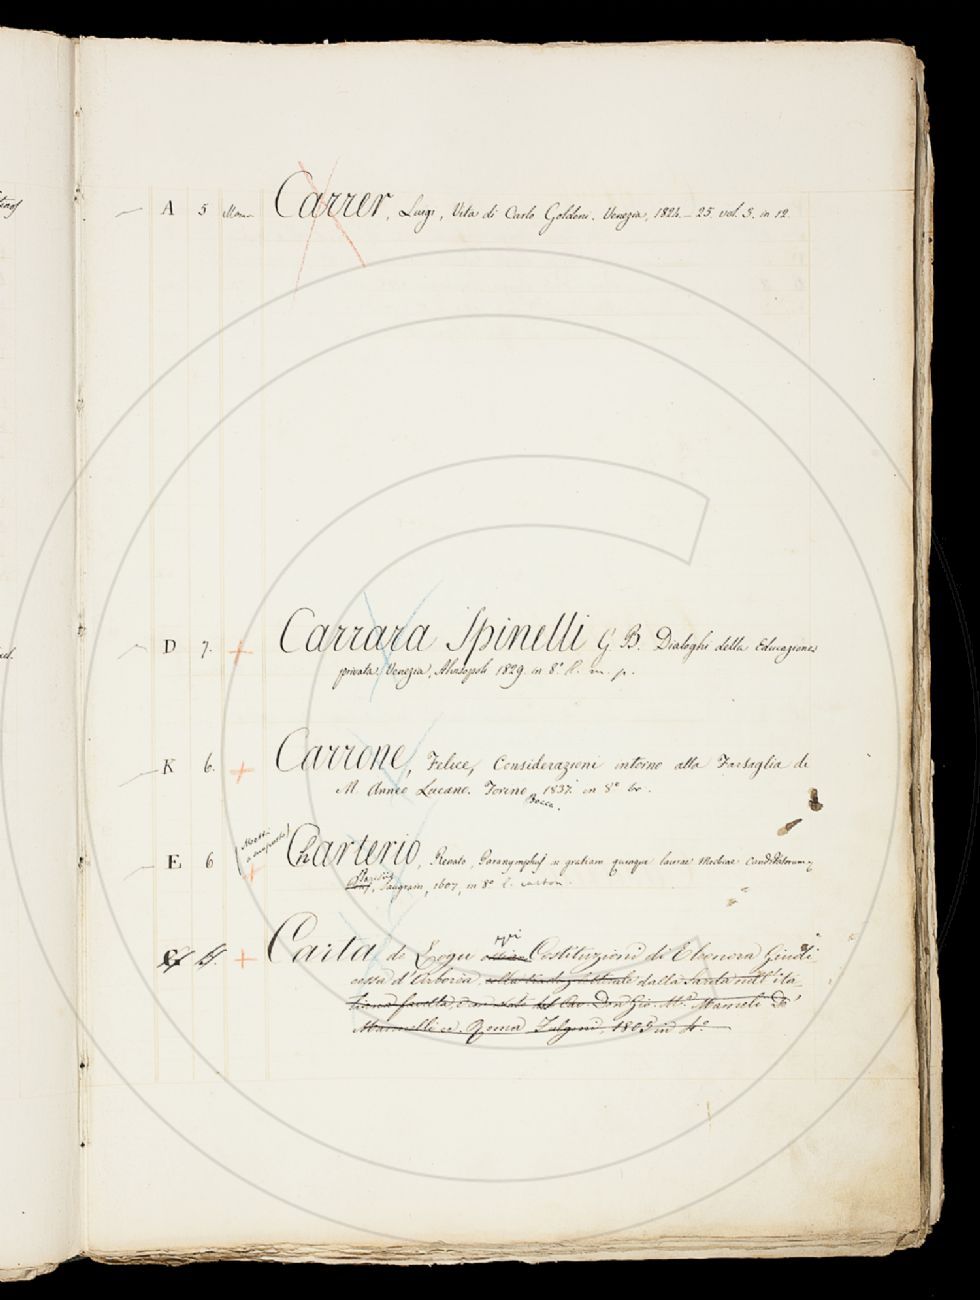 A 5 Carrer, Luigi, Vita di Carlo Goldoni. Venezia, 1824-25 vol. 3. in 12.
D 7. + Carrara Spinelli G. B. Dialoghi della Educazione
privata, Venezia, Alvisopoli 1829. in 8.° l. m. p.
K 6. + Carrone, Felice, Considerazioni intorno alla Farsaglia di
M. Anneo Lucano. Torino, 1837. in 8° br.
Bocca.
E 6 + Charterio, Renato, Paranymphus in gratiam quinque laureae Medicae Candidatorum
Parisiis, Saugrain, 1607, in 8° l. carton.
G + Carta de Logu ossia Costituzioni di Eleonora Giudi
cessa d'Arborea, dalla Sarda nell'ita-
liana favella, Cav. Don Gio. M.a Mameli De'
Mannelli ec. Roma Fulgoni, 1805 in 4°